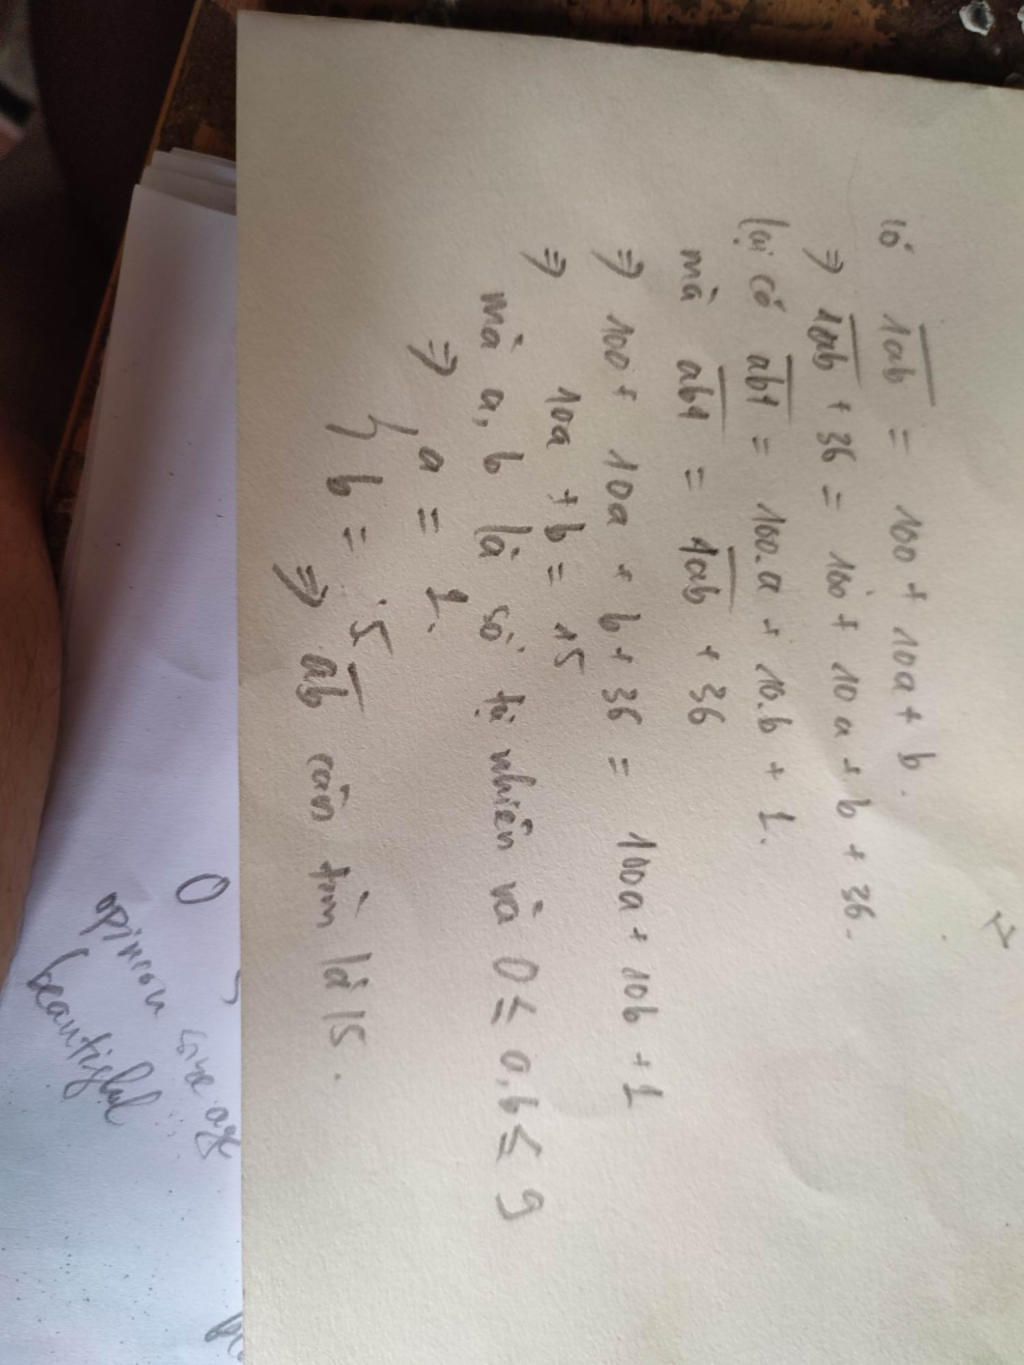 Có 1ab = 100 + 10a + b.
⇒ 1ab + 36 = 100 + 10a + b + 36.
lại có ab1 = 100.a + 10.b + 1.
mà ab1 = 1ab + 36
⇒ 100 + 10a + b + 36 = 100a + 10b + 1
⇒ 10a + b = 15
mà a, b là số tự nhiên và 0 ≤ a, b ≤ 9
⇒ { a = 1.
b = 5
⇒ ab cần tìm là 15.
O
opinion size age
beautiful